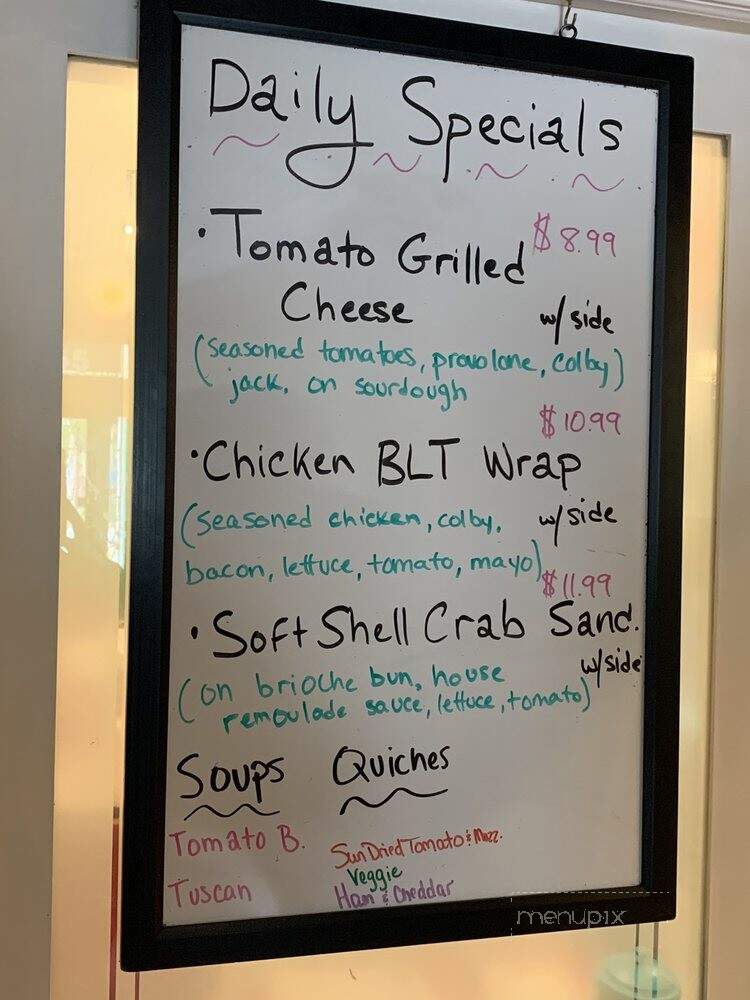 Daily Specials
• Tomato Grilled $8.99
Cheese w/ side
(seasoned tomatoes, provolone, colby)
jack, on sourdough
$10.99
• Chicken BLT Wrap
(seasoned chicken, colby, w/ side
bacon, lettuce, tomato, mayo)
$11.99
• Soft Shell Crab Sand.
w/ side
(on brioche bun, house
remoulade sauce, lettuce, tomato)
Soups Quiches
Tomato B. Sun Dried Tomato & Mozz.
Veggie
Tuscan Ham & Cheddar
menupix